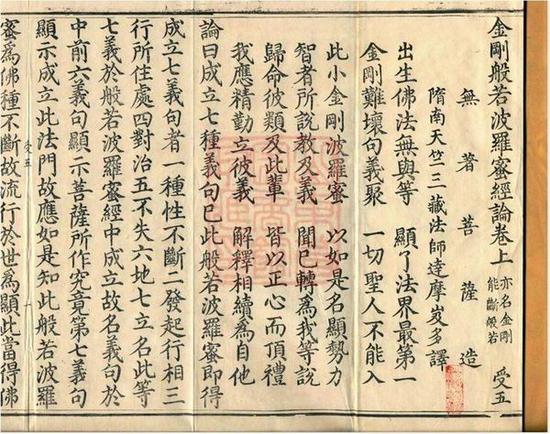 金剛般若波羅蜜經論卷上 亦名金剛能斷般若 受五
無著菩薩造
隋南天竺三藏法師達摩岌多譯
出生佛法無與等 顯了法界最第一
金剛難壞句義聚 一切聖人不能入
此小金剛波羅蜜 以如是名顯勢力
智者所說教及義 聞已轉為我等說
歸命彼類及此輩 皆以正心而頂禮
我應精勤立彼義 解釋相續為自他
論曰成立七種義句已此般若波羅蜜即得
成立七義句者一種性不斷二發起行相三
行所住處四對治五不失六地七立名此等
七義於般若波羅蜜經中成立故名義句於
中前六義句顯示菩薩所作究竟第七義句
顯示成立此法門故應如是知此般若波羅
蜜為佛種不斷故流行於世為顯此當得佛
受五